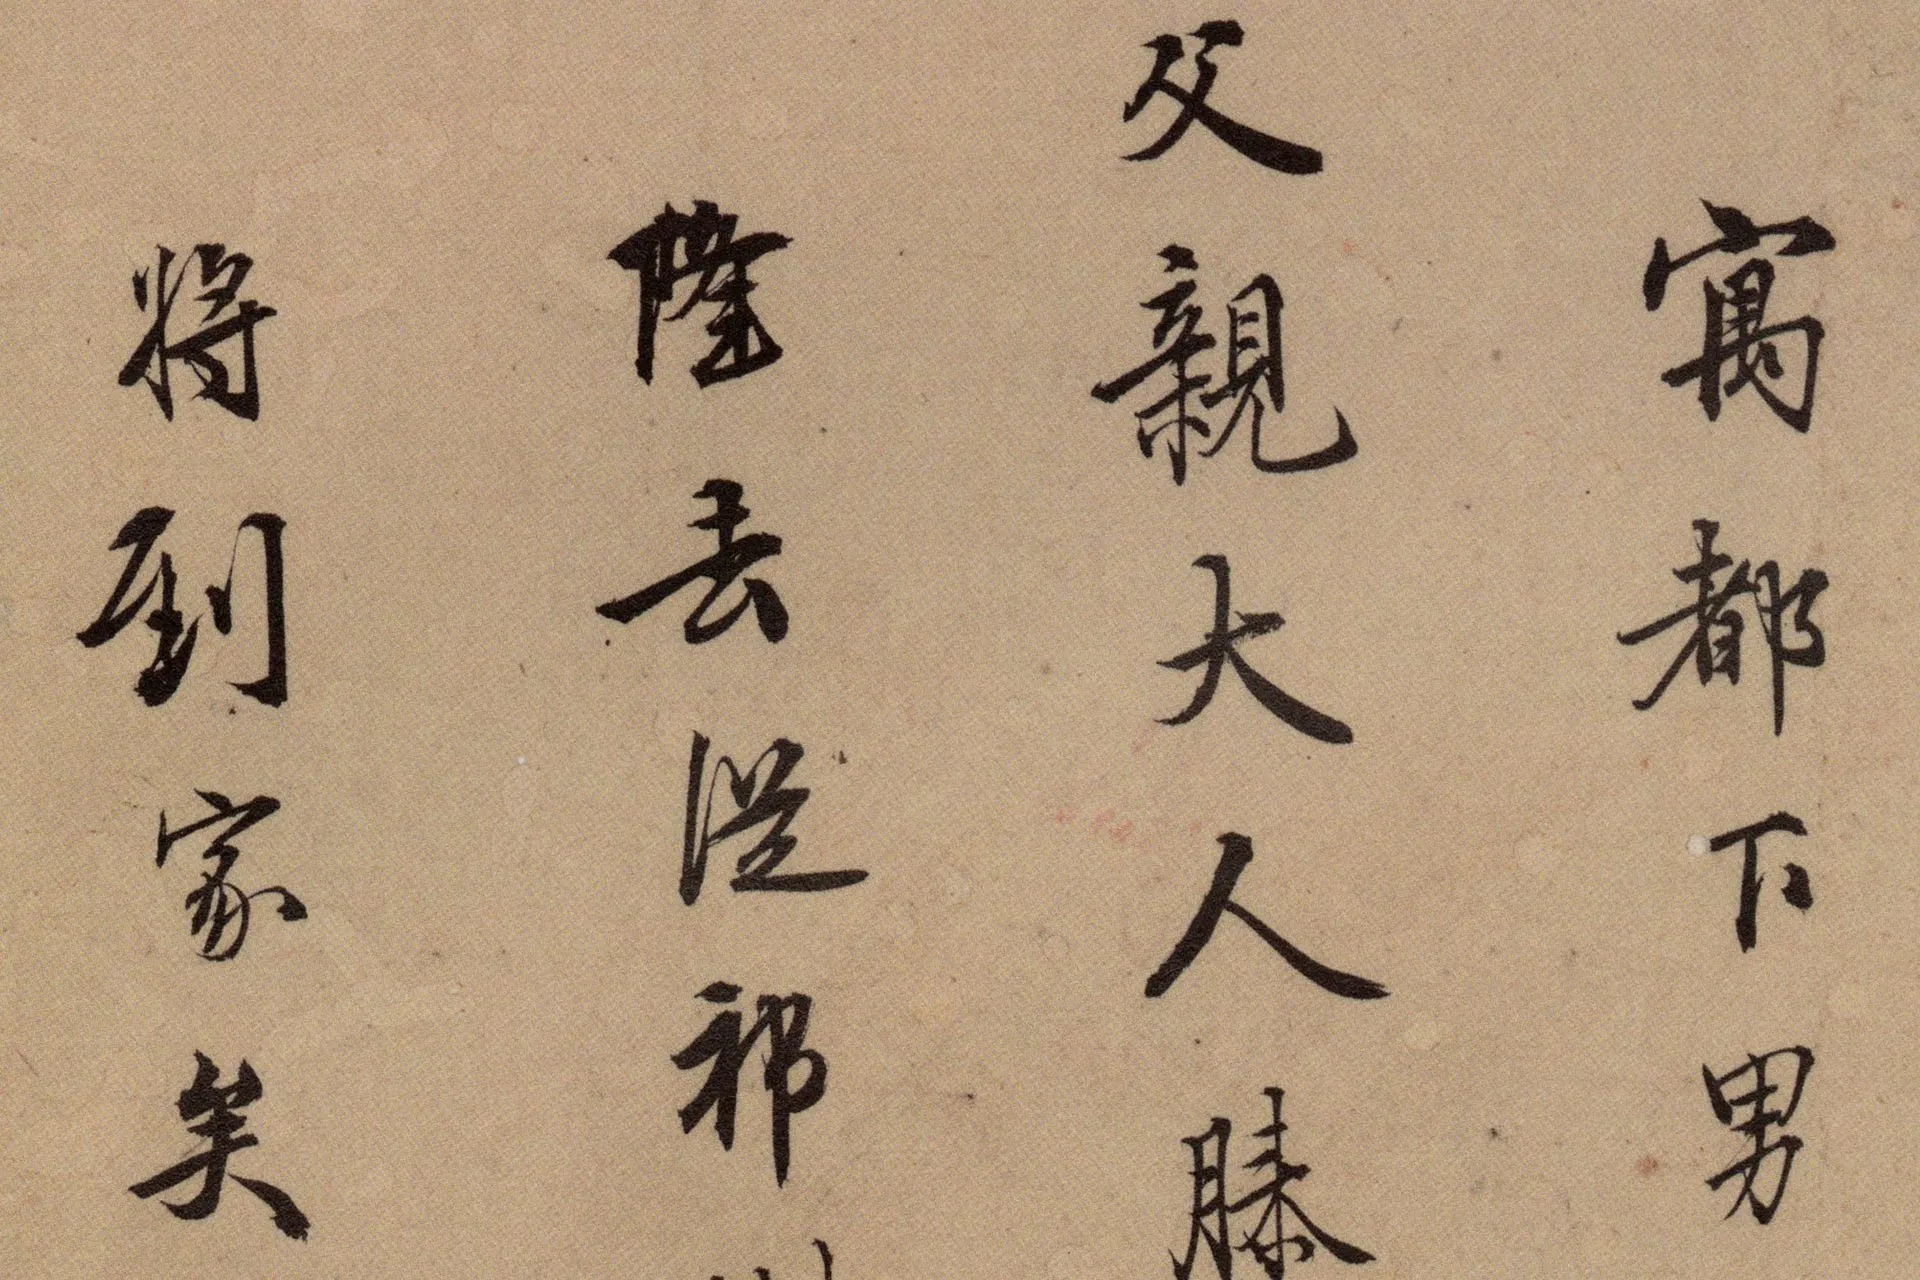 寓都下男
父親大人膝
隆去從祁
將到家矣